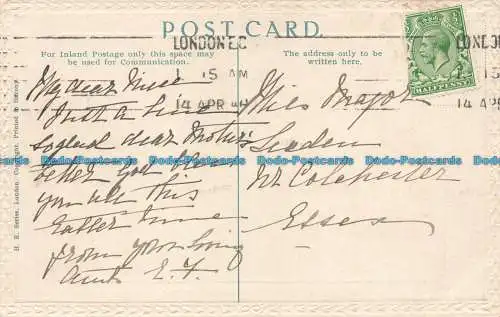 POST CARD.
For Inland Postage only this space may
be used for Communication.
The address only to be
written here.
LONDON E.C
1 15 AM
14 APR
LONDON
15
14 APR
HALFPENNY
H. B. Series, London. Copyright. Printed in
My dear Niece
Just a line
so glad dear Mother's
better God bless
you all this
Easter time
from your loving
Aunt E. F.
Miss Major
Layer
Nr Colchester
Essex
Dodo-Postcards Dodo-Postcards Dodo-Postcards Dodo-Postcards Dodo-Postcards